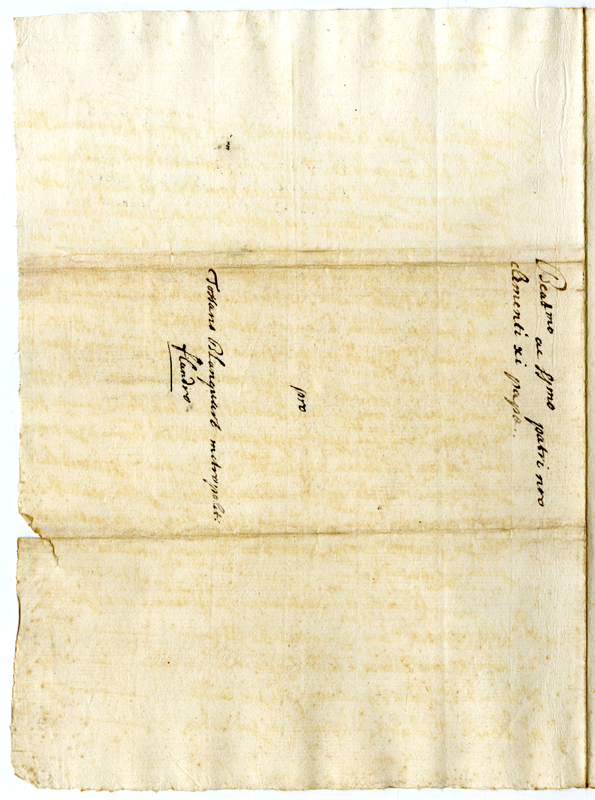 Beatmo ac ssmo patri nro
clementi xi papo..
pro
Johane Blanquart metropolit:
flandro